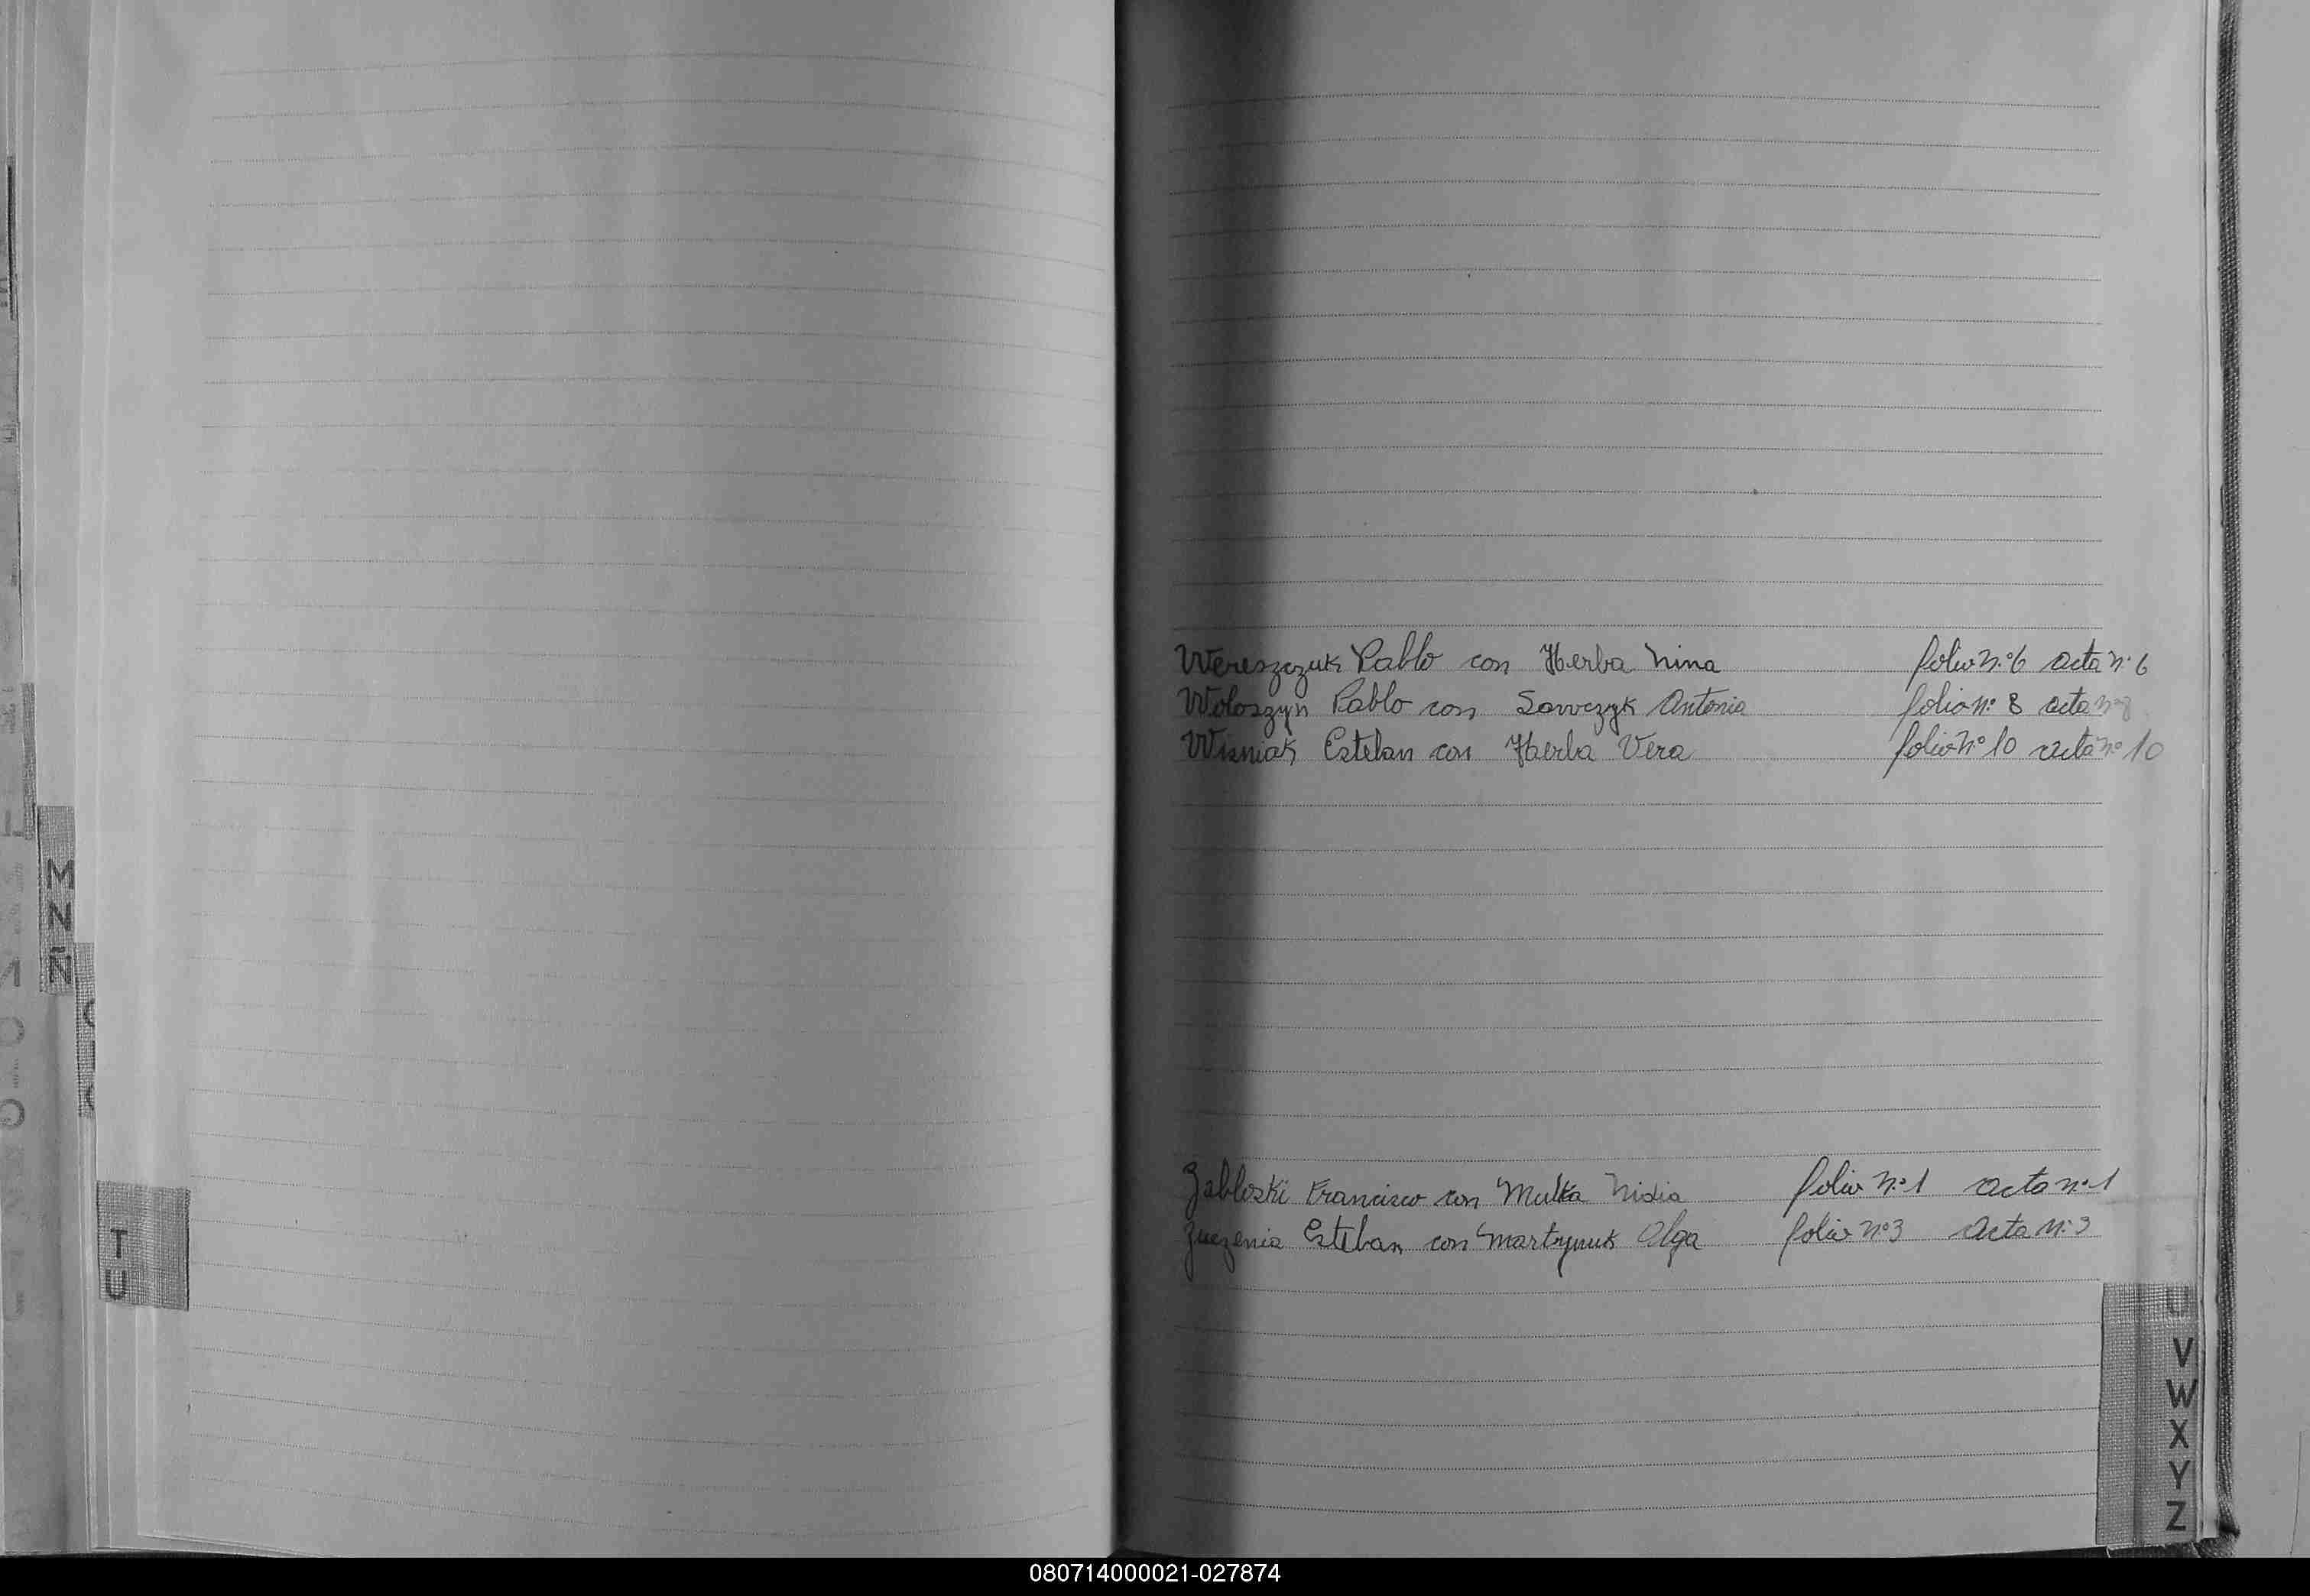 Wereszczuk Pablo con Herba Nina folio nº 6 acta nº 6
Woloszyn Pablo con Sawczyk Antonia folio nº 8 acta nº 8
Wisniak Esteban con Herba Vera folio nº 10 acta nº 10
Zabloski Francisco con Mulka Nidia folio nº 1 acta nº 1
Esteban con Martynuk Olga folio nº 3 Acta nº 3
M
N
Ñ
T
U
U
V
W
X
Y
Z
080714000021-027874